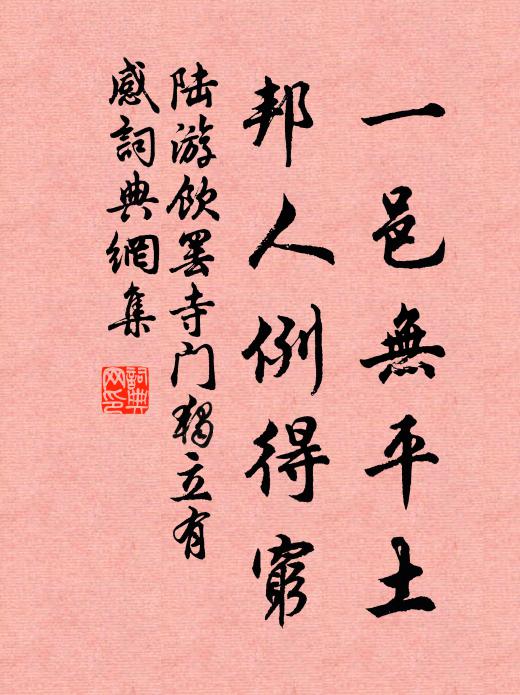 一邑無平土
邦人例得窮
陆游飲罢寺门獨立有
感詞典網集
詞典
网印